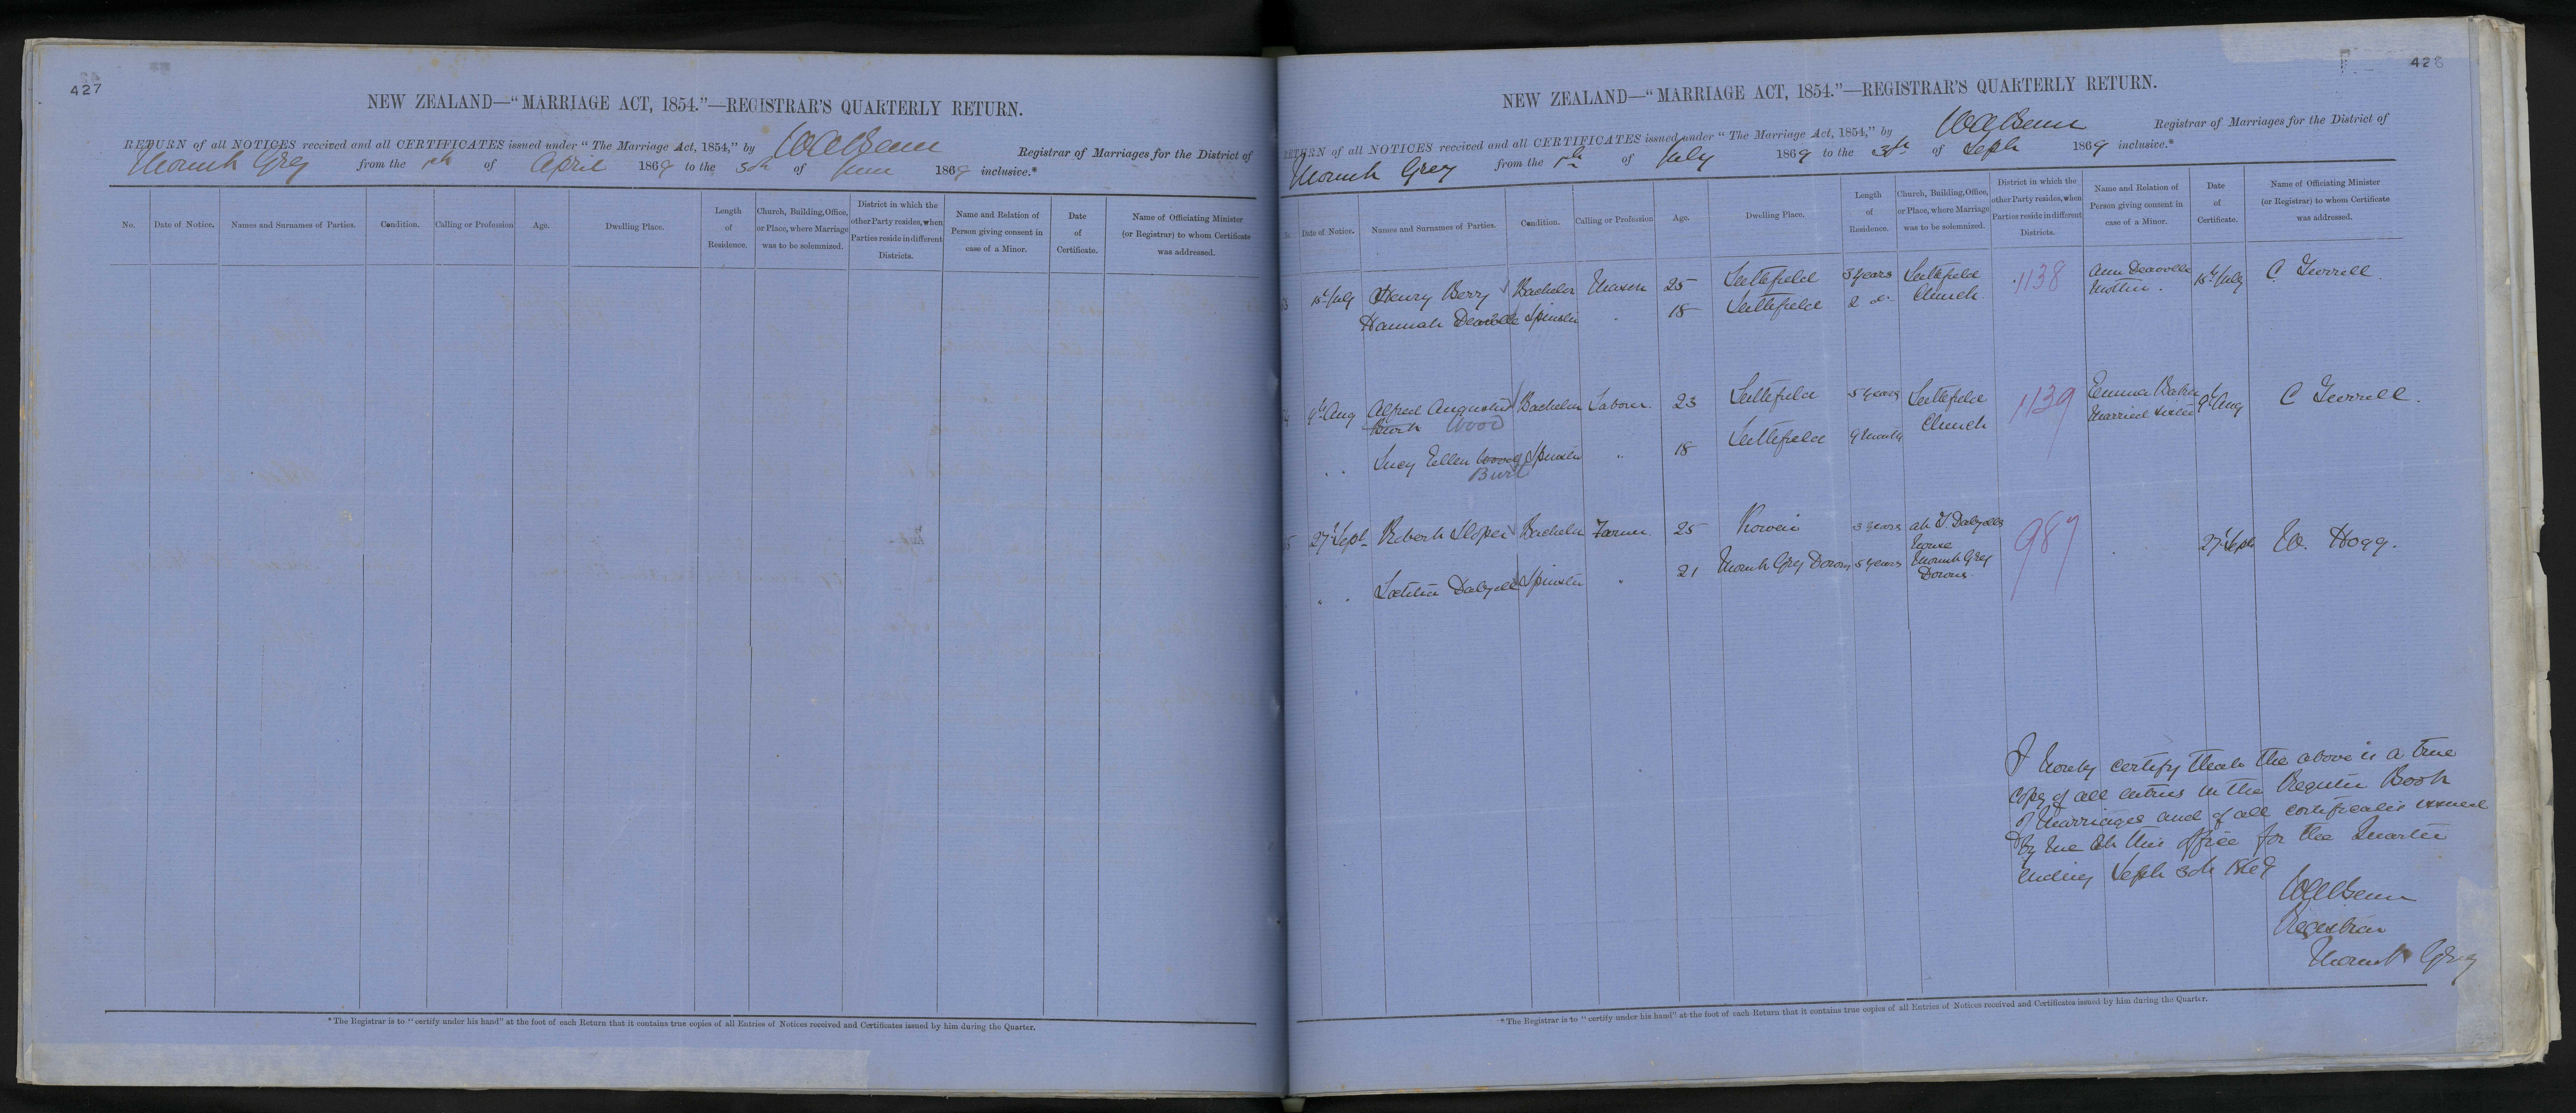 427
NEW ZEALAND—“MARRIAGE ACT, 1854.”—REGISTRAR'S QUARTERLY RETURN.
RETURN of all NOTICES received and all CERTIFICATES issued under “The Marriage Act, 1854,” by Registrar of Marriages for the District of
Mount Grey from the of April 1869 to the 30th of June 1869 inclusive.*
No.
Date of Notice.
Names and Surnames of Parties.
Condition.
Calling or Profession
Age.
Dwelling Place.
Length
of
Residence.
Church, Building, Office,
or Place, where Marriage
was to be solemnized.
District in which the
other Party resides, when
Parties reside in different
Districts.
Name and Relation of
Person giving consent in
case of a Minor.
Date
of
Certificate.
Name of Officiating Minister
(or Registrar) to whom Certificate
was addressed.
*The Registrar is to “certify under his hand” at the foot of each Return that it contains true copies of all Entries of Notices received and Certificates issued by him during the Quarter.
428
NEW ZEALAND—“MARRIAGE ACT, 1854.”—REGISTRAR'S QUARTERLY RETURN.
RETURN of all NOTICES received and all CERTIFICATES issued under “The Marriage Act, 1854,” by Registrar of Marriages for the District of
Mount Grey from the of July 1869 to the 30th of Sept 1869 inclusive.*
Date of Notice.
Names and Surnames of Parties.
Condition.
Calling or Profession
Age.
Dwelling Place.
Length
of
Residence.
Church, Building, Office,
or Place, where Marriage
was to be solemnized.
District in which the
other Party resides, when
Parties reside in different
Districts.
Name and Relation of
Person giving consent in
case of a Minor.
Date
of
Certificate.
Name of Officiating Minister
(or Registrar) to whom Certificate
was addressed.
July Henry Berry Bachelor Mason 25 Leithfield 5 years Leithfield Church 1138 Ann Mother July C Turrell
Hannah Spinster 18 Leithfield 2 do
9th Aug Alfred Augustus Burt Wood Bachelor Labourer 23 Leithfield 5 years Leithfield Church 1139 Emma Baker Married sister 9th Aug C Turrell.
" " Lucy Ellen Wood Burt Spinster " 18 Leithfield 9 months
27th Sept Robert Sloper Bachelor Farmer 25 Kowai 3 years at J. Dalzells House Mount Grey Downs 987 27th Sept W. Hogg.
" " Laetitia Dalzell Spinster " 21 Mount Grey Downs 5 years
I hereby certify that the above is a true
copy of all entries in the Register Book
of Marriages and of all certificates issued
by me at this office for the Quarter
ending Sept 30th 1869
Registrar
Mount Grey
*The Registrar is to “certify under his hand” at the foot of each Return that it contains true copies of all Entries of Notices received and Certificates issued by him during the Quarter.